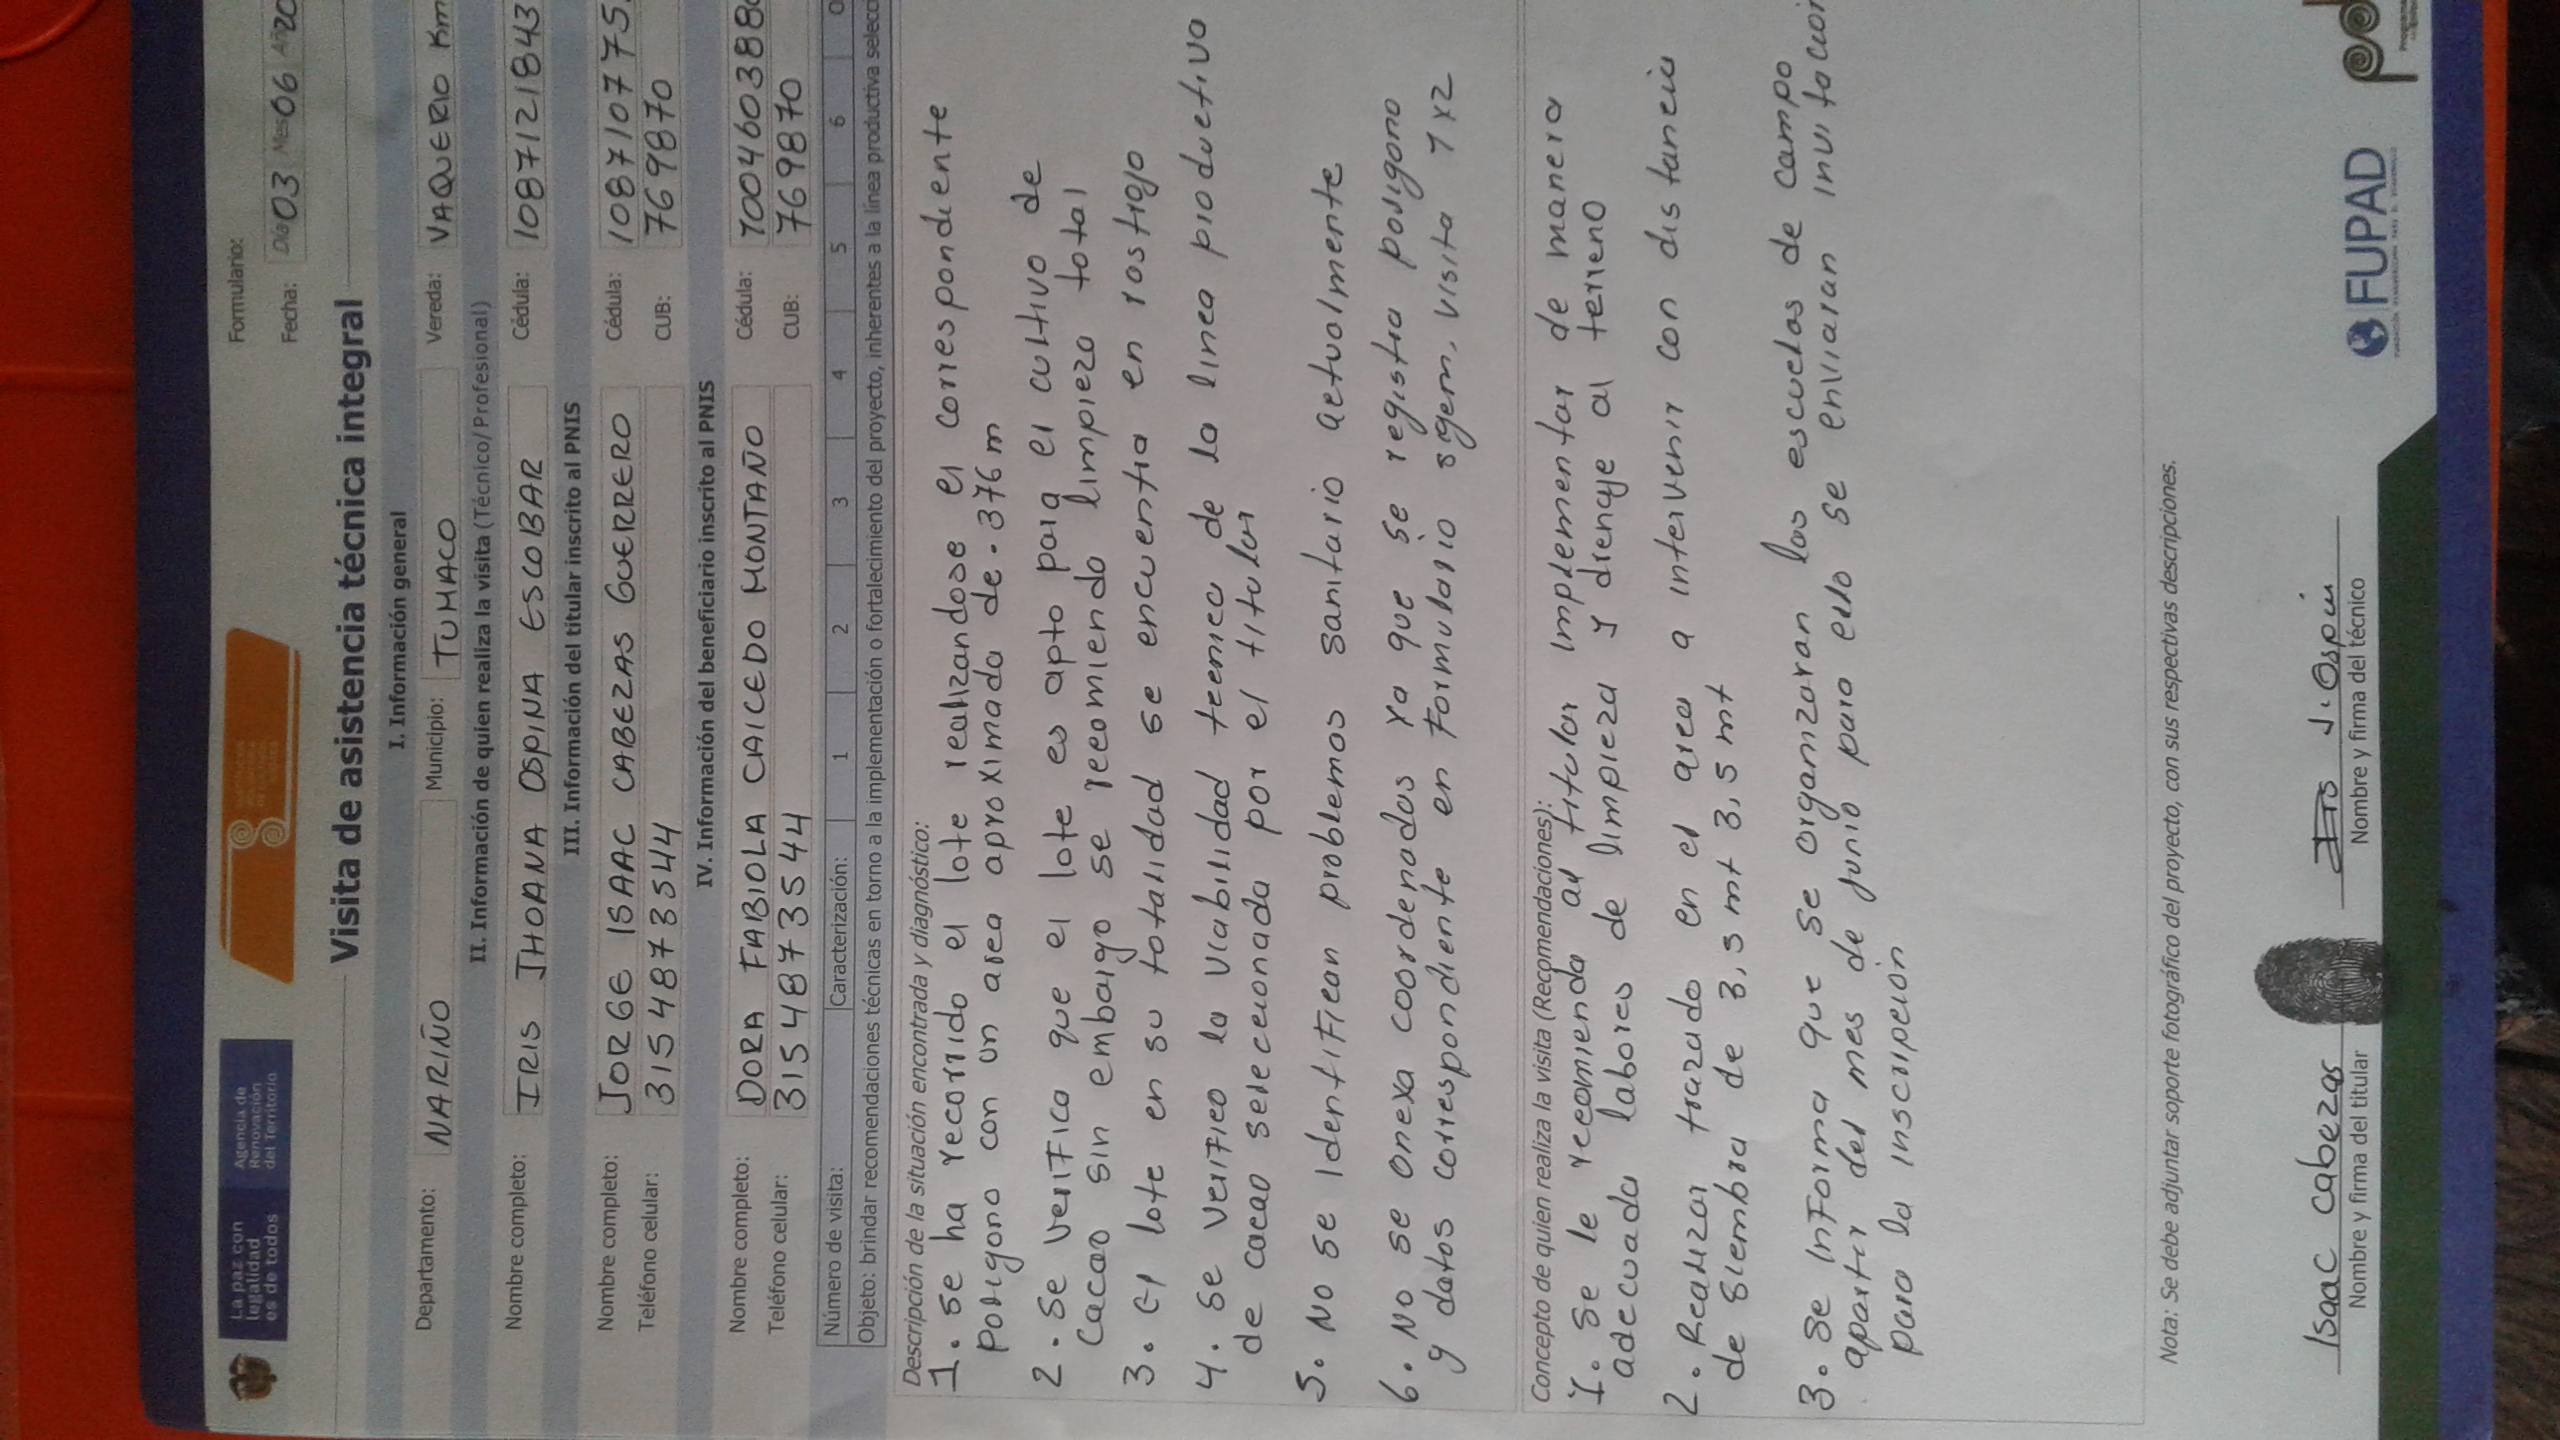 La paz con
legalidad
es de todos
Agencia de
Renovación
del Territorio
Formulario:
Fecha: Día 03 Mes 06 Año 20
Visita de asistencia técnica integral
I. Información general
Departamento: NARIÑO Municipio: TUMACO Vereda: VAQUERIO Km
II. Información de quien realiza la visita (Técnico/ Profesional)
Nombre completo: IRIS JHOANA OSPINA ESCOBAR Cédula: 1087121843
III. Información del titular inscrito al PNIS
Nombre completo: JORGE ISAAC CABEZAS GUERRERO Cédula: 108710775
Teléfono celular: 3154873544 CUB: 769870
IV. Información del beneficiario inscrito al PNIS
Nombre completo: DORA FABIOLA CAICEDO MONTAÑO Cédula: 100460388
Teléfono celular: 3154873544 CUB: 769870
Número de visita: Caracterización: 1 2 3 4 5 6
Objeto: brindar recomendaciones técnicas en torno a la implementación o fortalecimiento del proyecto, inherentes a la línea productiva selecc
Descripción de la situación encontrada y diagnóstico:
1. se ha recorrido el lote realizandose el correspondiente
poligono con un area aproximada de. 376 m
2. se verifica que el lote es apto para el cultivo de
cacao sin embargo se recomienda limpieza total
3. el lote en su totalidad se encuentra en rostrojo
4. se verifico la viabilidad tecnica de la linea productiva
de cacao seleccionada por el titular
5. No se identifican problemas sanitario actualmente
6. No se anexa coordenadas ya que se registra poligono
y datos correspondiente en formulario sigem, visita 1x2
Concepto de quien realiza la visita (Recomendaciones):
1. se le recomienda al titular implementar de manera
adecuada labores de limpieza y drenaje al terreno
2. Realizar trazado en el area a intervenir con distancia
de siembra de 3,5 mt 3,5 mt
3. se informa que se organizaran las escuelas de campo
apartir del mes de junio para ello se enviaran invitacion
para la inscripcion
Nota: Se debe adjuntar soporte fotográfico del proyecto, con sus respectivas descripciones.
Isaac cabezas
Nombre y firma del titular
J. Ospin
Nombre y firma del técnico
FUPAD